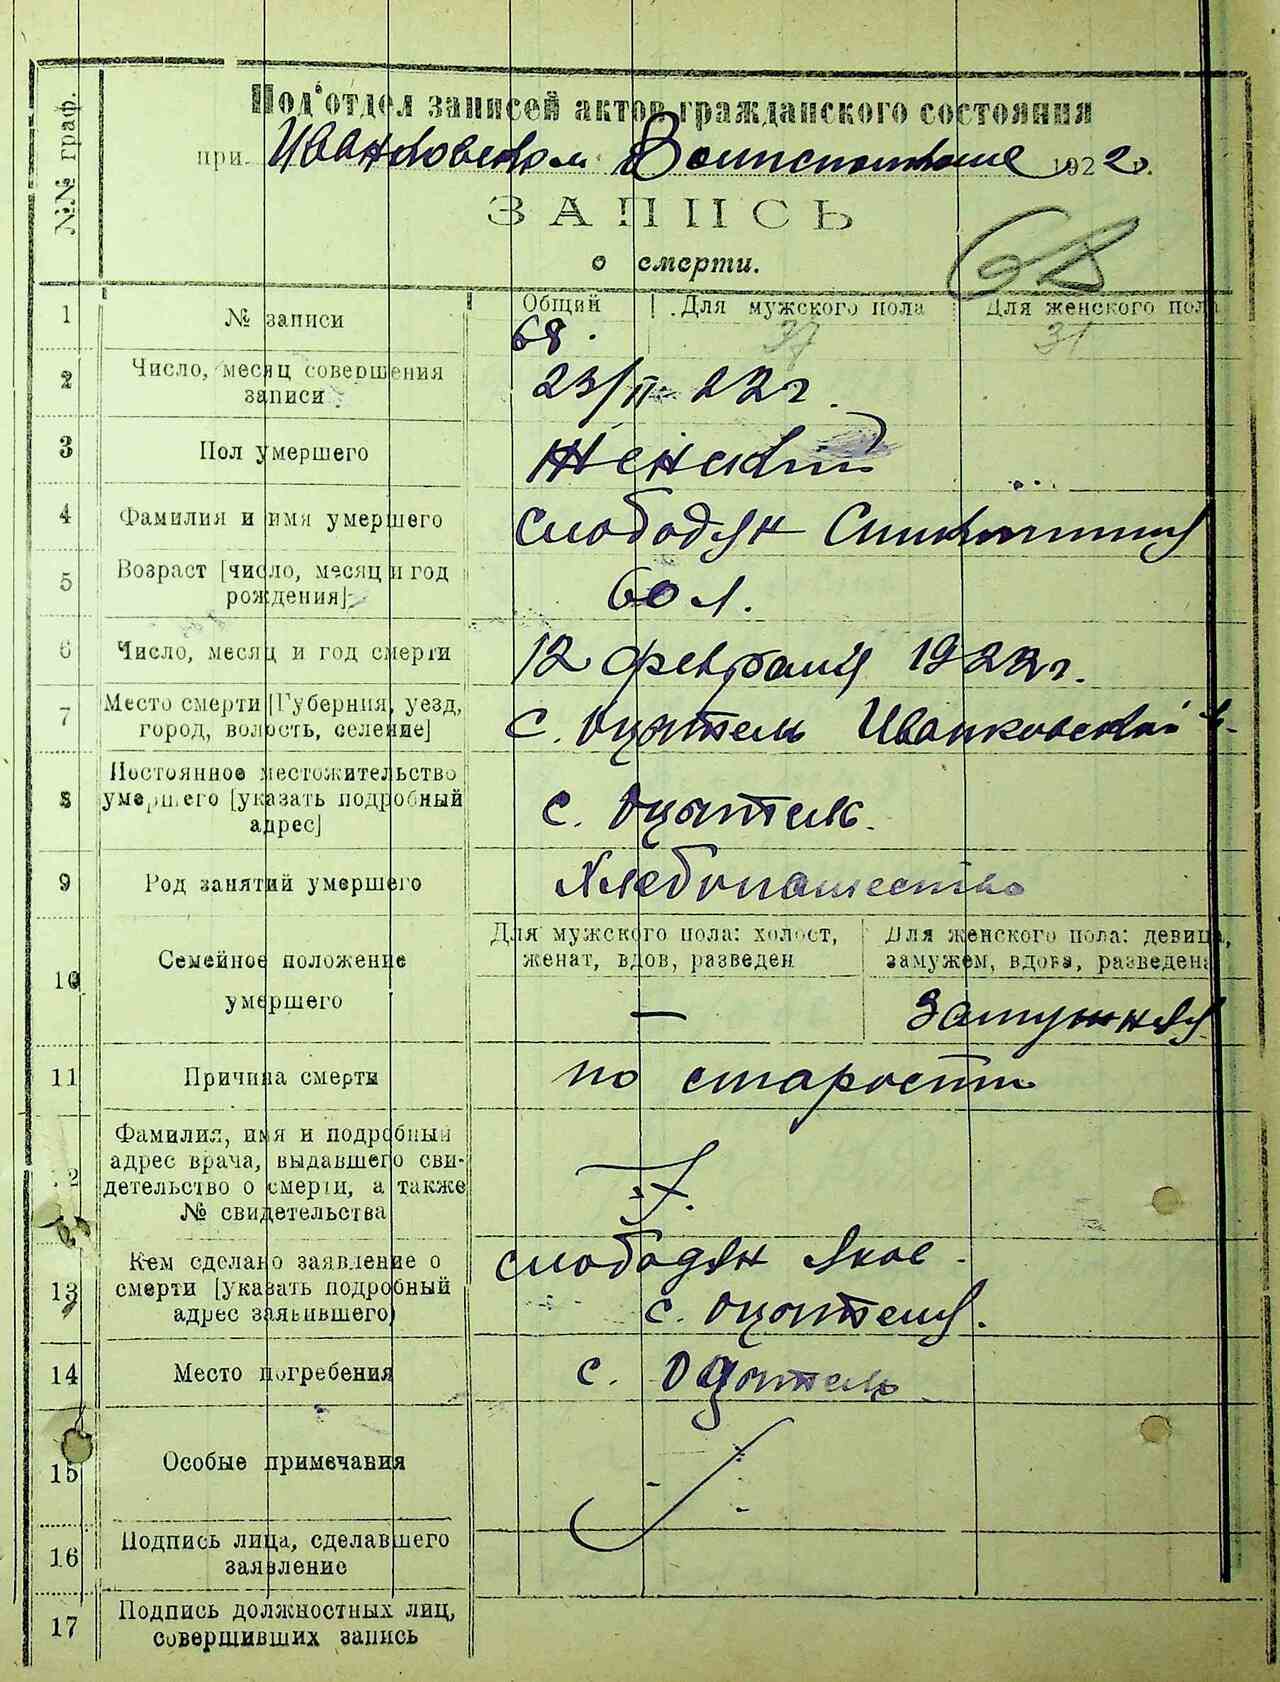 №№ граф.
Под'отдел записей актов гражданского состояния
при Иванковском Волисполкоме 1922 г.
ЗАПИСЬ
о смерти.
68
1 № записи Общий Для мужского пола Для женского пола
68. 37 31
2 Число, месяц совершения
записи 23/II 22 г.
3 Пол умершего Женский
4 Фамилия и имя умершего Слободян
5 Возраст [число, месяц и год
рождения] 60 л.
6 Число, месяц и год смерти 12 февраля 1922 г.
7 Место смерти [Губерния, уезд,
город, волость, селение] с. Оцятель Иванковской в.
8 Постоянное местожительство
умершего [указать подробный
адрес] с. Оцятель.
9 Род занятий умершего Хлебопашество
10 Семейное положение
умершего
Для мужского пола: холост,
женат, вдов, разведен
—
Для женского пола: девица,
замужем, вдова, разведена
Замужняя
11 Причина смерти по старости
12 Фамилия, имя и подробный
адрес врача, выдавшего сви-
детельство о смерти, а также
№ свидетельства
13 Кем сделано заявление о
смерти [указать подробный
адрес заявившего)
Слободян Яков.
с. Оцятеля.
14 Место погребения с. Оцятель
15 Особые примечания
16 Подпись лица, сделавшего
заявление
17 Подпись должностных лиц,
совершивших запись